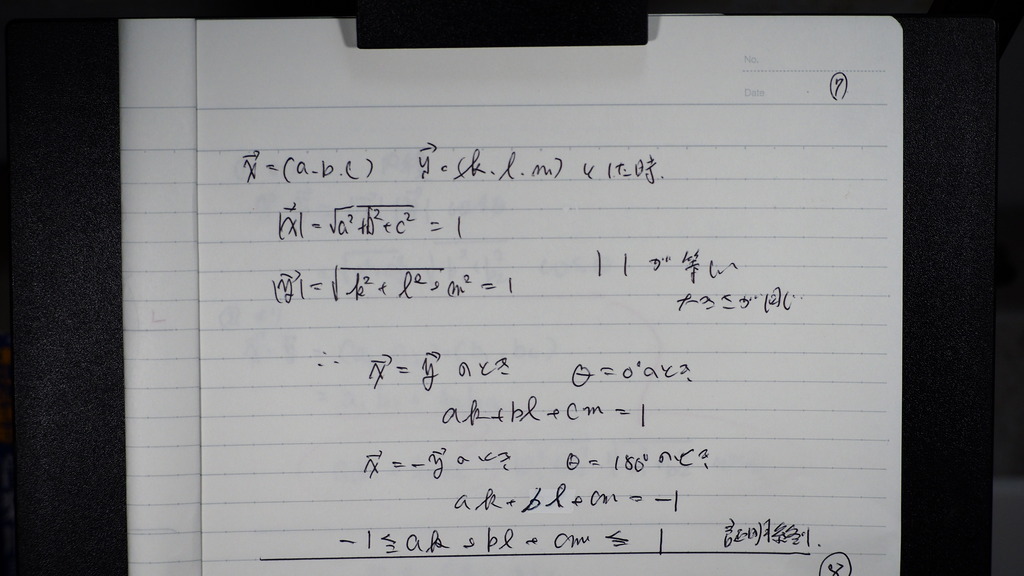 No.
Date ⑦
x⃗=(a.b.c) y⃗=(k.l.m) とした時.
|x⃗|=√a²+b²+c² = 1
|y⃗|=√k²+l²+m² = 1
| | が等しい
大きさが同じ
∴ x⃗=y⃗ のとき θ=0°のとき
ak+bl+cm=1
x⃗=-y⃗ のとき θ=180°のとき
ak+bl+cm=-1
-1≦ak+bl+cm≦1 証明終り.
⑧